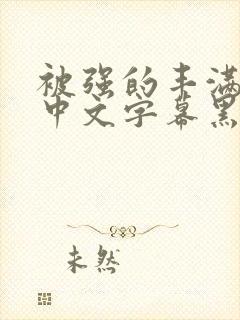 被强的丰满
中文字幕黑
未然